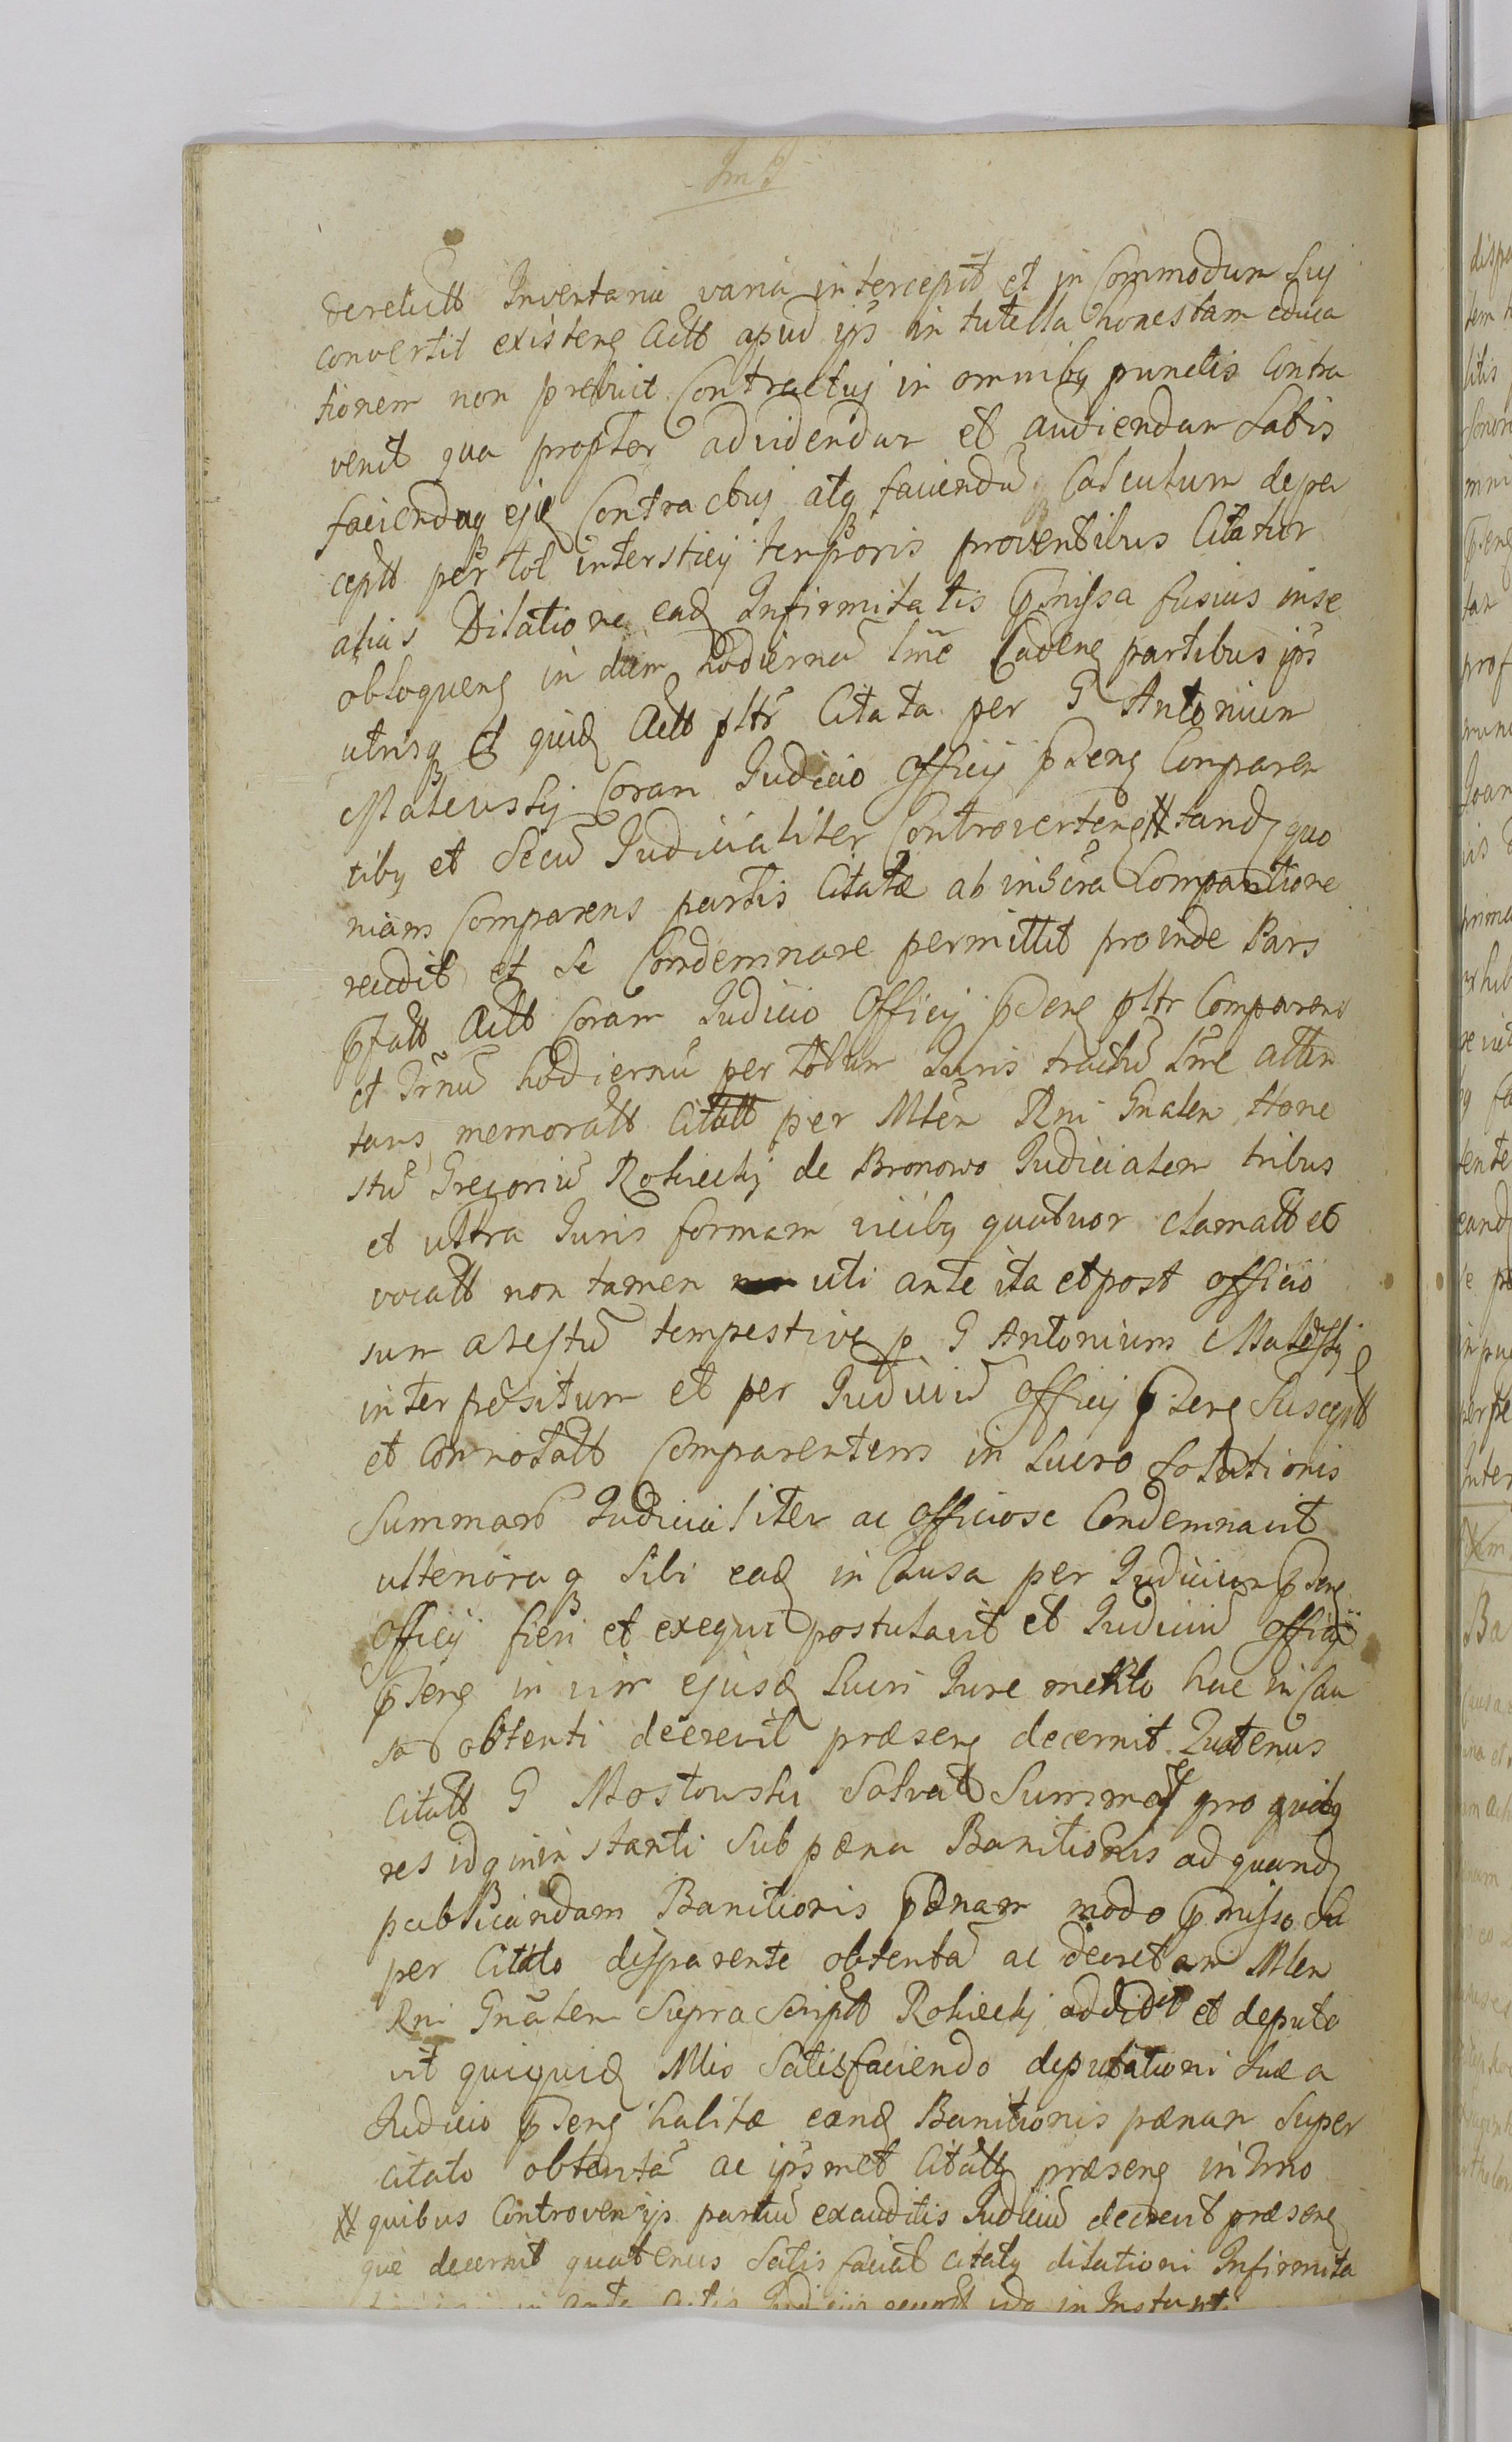 derelictt Inventaria varia intercepit et in Commodum Suj
convertit existens Actt apud ips in tutella honestam educa
tionem non prebuit Contractuj in omnibq punctis Contra
venit qua propter ad videndum et audiendum Satis
faciendumq ejd Contractuj atq faciendū Calculum de per
ceptt per tot interstitij temporis proventibus Citatur
alias Dilatione ead Infirmitatis pmissa fusius in se
obloquens in diem hodiernā lme Cadens partibus ips
utrisq et quid Actt pltr Citata per G Antonium
Malewskj Coram Judicio Officij pdens Comparen
tibq et Secū Judicialiter Controvertens # tand quo
niam Comparens partis Citatæ ab inscra Comparitione
recedit et Se Condemnare permittit proinde Pars
pfatt Actt Coram Judicio Officij pdens pltr Comparens
et Trnū hodiernū per totum Juris tractū lme atten
tans memoratt Citatt per Mlem Rni Gnalem Hone
stū Gregoriū Rokickj de Bronowo Judicialem tribus
et ultra Juris formam vicibq quatuor clamatt et
vocatt non tamen uti ante ita et post officio
sum arestū tempestive p G Antonium Malewskj
interpositum et per Judiciū Officij pdens Susceptt
et Connotatt Comparentem in Lucro Solutionis
Summarū Judicialiter ac Officiose Condemnavit
ulteriora q Sibi ead in Causa per Judicium pdens
Officij fieri et exequi postulavit et Judiciū Officij
pdens in vim ejusd Lucri Jure merito hac in Cau
sa obtenti decrevit præsens decernit Quatenus
Citatt G Mostowski Solvat Summas pro quibq
res idq in instanti Sub pœna Banitionis ad quand
publicandam Banitionis pœnam modo pmisso Su
per Citato disparente obtentā ac decretam Mlem
Rni Gnalem Supra Scriptt Rokickj addidit et deputa
vit qui quid Mlis Satisfaciendo deputationi Suæ a
Judicio pdens habitæ eand Banitionis pœnam Super
Citato obtentā ac ipsmet Citatt præsens in Trno
# quibus Controversijs partiū exauditis Judiciū decrevit præsens
que decernit quatenus Satis faciat Citatq dilationi Infirmita
in Instanti